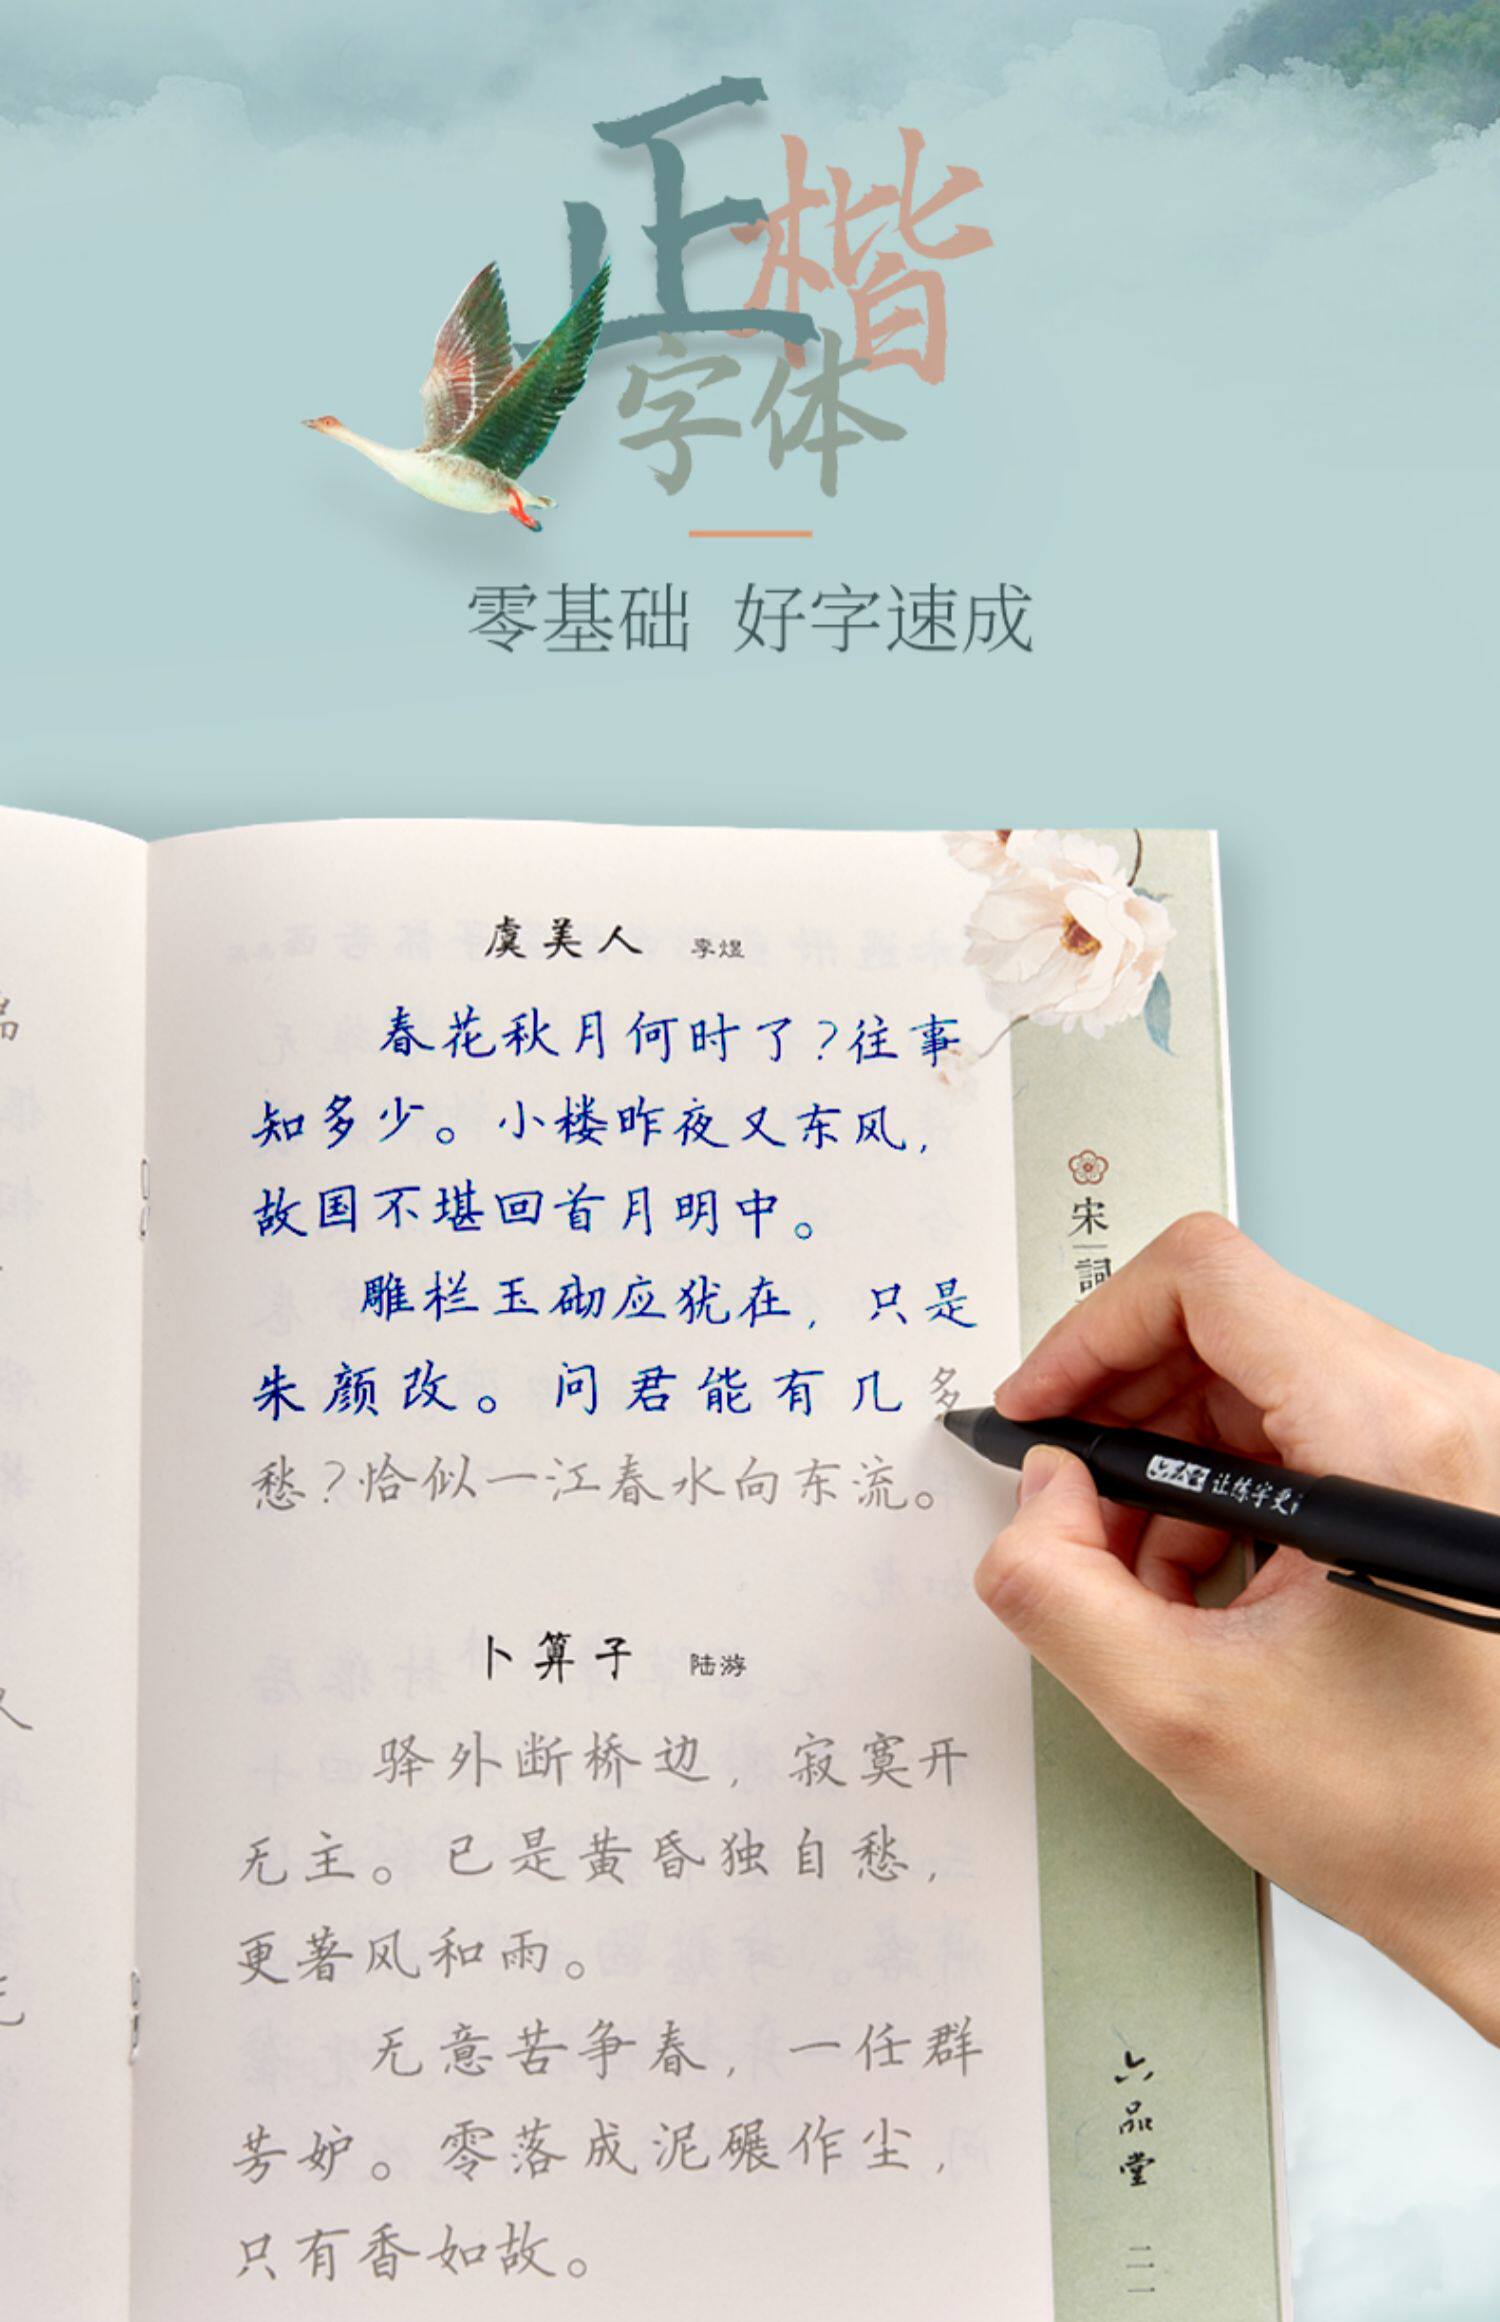 正楷
字体
零基础 好字速成
虞美人 李煜
春花秋月何时了？往事
知多少。小楼昨夜又东风，
故国不堪回首月明中。
雕栏玉砌应犹在，只是
朱颜改。问君能有几多
愁？恰似一江春水向东流。
卜算子 陆游
驿外断桥边，寂寞开
无主。已是黄昏独自愁，
更著风和雨。
无意苦争春，一任群
芳妒。零落成泥碾作尘，
只有香如故。
宋詞
六品堂
二一
六品堂 让练字更